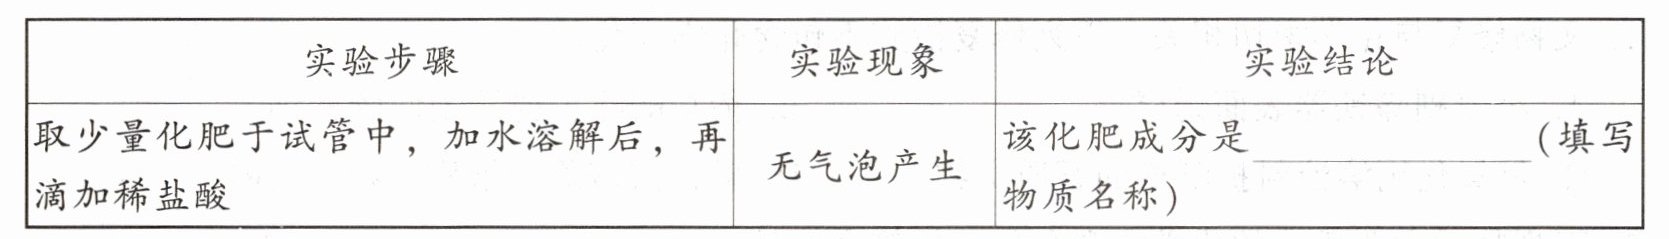 实验步骤 实验现象 实验结论
取少量化肥于试管中，加水溶解后，再
滴加稀盐酸
无气泡产生
该化肥成分是________(填写
物质名称)